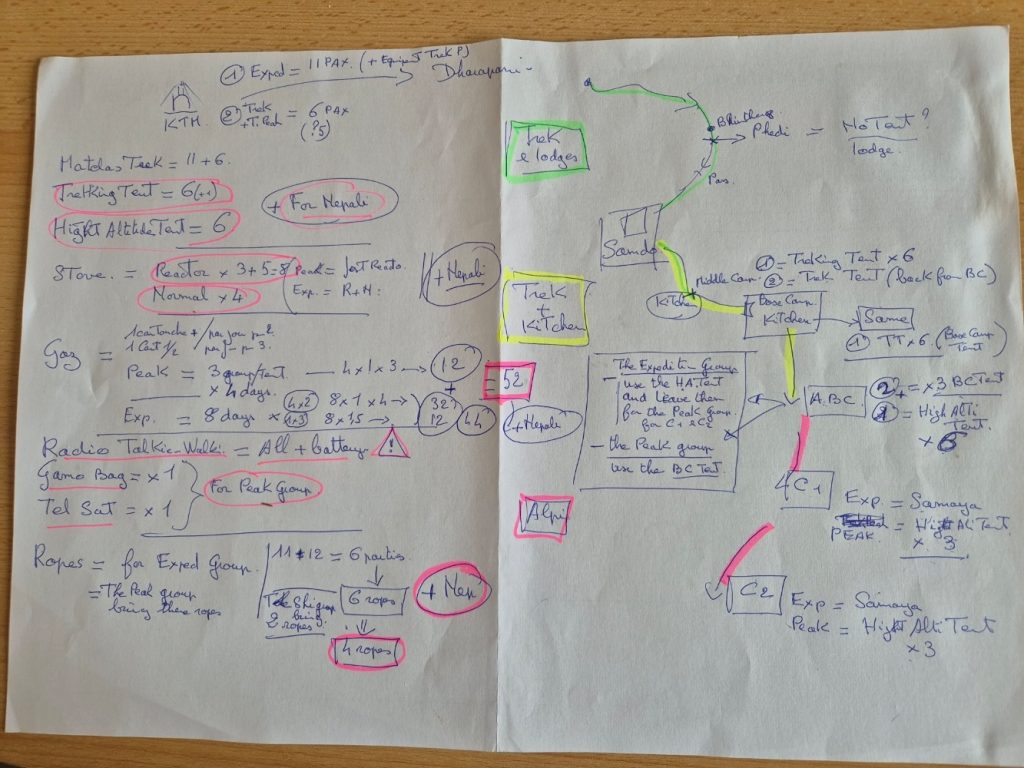 ① Exped = 11 PAX (+ Equipmt Trek P)
Dharapani
KTM
② Trek + T. Peak = 6 PAX
(?5)
Matelas Trek = 11 + 6.
Trekking Tent = 6(+1)
+ For Nepali
Hight Altitude Tent = 6
Stove. = Reactor × 3 + 5 = 8
Normal × 4
Peak = Just Reacto.
Exp. = R + N :
+ Nepali
Gaz =
1 cartouche + / par jour pr 2.
1 Cart 1/2 par j pr 3.
Peak = 3 group/tent. × 4 days. — 4 × 1 × 3 → 12
+
= 52
Exp. = 8 days × (4×2) 8 × 1 × 4 → 32
(1×3) 8 × 1,5 → 12
44
(+ Nepali)
Radio Talkie-Walki = All + battery !
Gamo Bag = × 1
Tel Sat = × 1
For Peak Group
Ropes = for Exped Group.
= The Peak group
bring there ropes
11 + 12 = 6 parties
6 ropes
bring
2 ropes
4 ropes
+ Nep
Trek
e lodges
Bhimthang
Phedi = No Tent ?
lodge.
Pas.
Samdo
Trek
+
Kitchen
Kitchen
Middle Camp
① = Treking Tent × 6
② = Trek Tent (back from BC)
Base Camp
Kitchen
Same
① TT × 6 (Base Camp
Tent)
The Expedition Group
- use the HA Tent
and leave them
for the Peak Group.
for C1 & C2
- the Peak group
use the BC Tent
A.BC
② = × 3 BC Tent
① = High Alti
Tent.
× 6
Alpi
C1
Exp = Samaya
PEAK = High Alti Tent
× 3
C2
Exp = Samaya
Peak = Hight Alti Tent
× 3